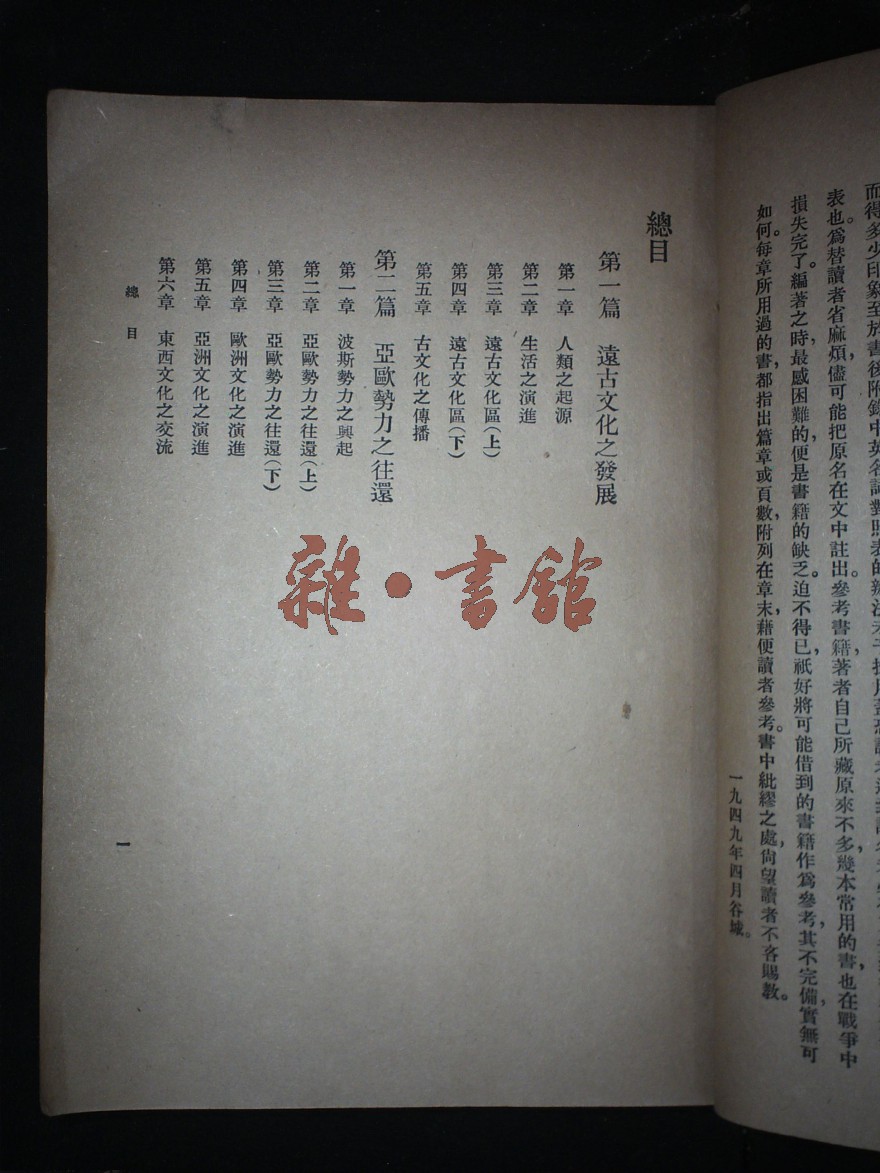 而得多少印象至於書後附錄中英名詞對照表的辦法
表也。爲替讀者省麻煩，儘可能把原名在文中註出。參考書籍，著者自己所藏原來不多，幾本常用的書，也在戰爭中
損失完了。編著之時，最感困難的便是書籍的缺乏。迫不得已，祇好將可能借到的書籍作爲參考，其不完備，實無可
如何。每章所用過的書，都指出篇章或頁數，附列在章末，藉便讀者參考。書中紕繆之處，尙望讀者不吝賜教。
一九四九年四月谷城。
總目
第一篇 遠古文化之發展
第一章 人類之起源
第二章 生活之演進
第三章 遠古文化區（上）
第四章 遠古文化區（下）
第五章 古文化之傳播
第二篇 亞歐勢力之往還
第一章 波斯勢力之興起
第二章 亞歐勢力之往還（上）
第三章 亞歐勢力之往還（下）
第四章 歐洲文化之演進
第五章 亞洲文化之演進
第六章 東西文化之交流
總目
一
雜·書館